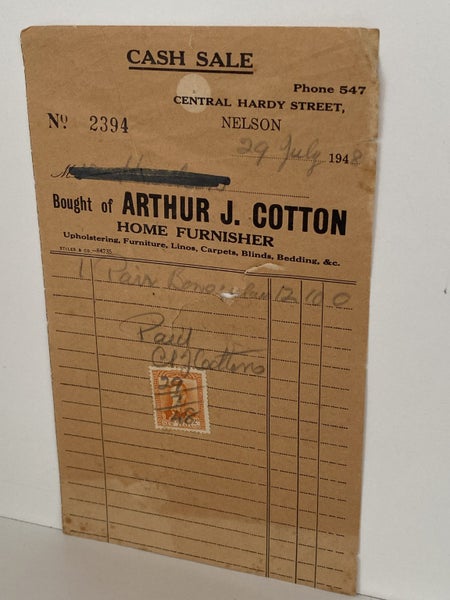 CASH SALE
Phone 547
CENTRAL HARDY STREET,
No 2394 NELSON
29 July 1948
M
Bought of ARTHUR J. COTTON
HOME FURNISHER
Upholstering, Furniture, Linos, Carpets, Blinds, Bedding, &c.
STILES & CO.—84735
1 Pair 12 10 0
Paid
29
7
48